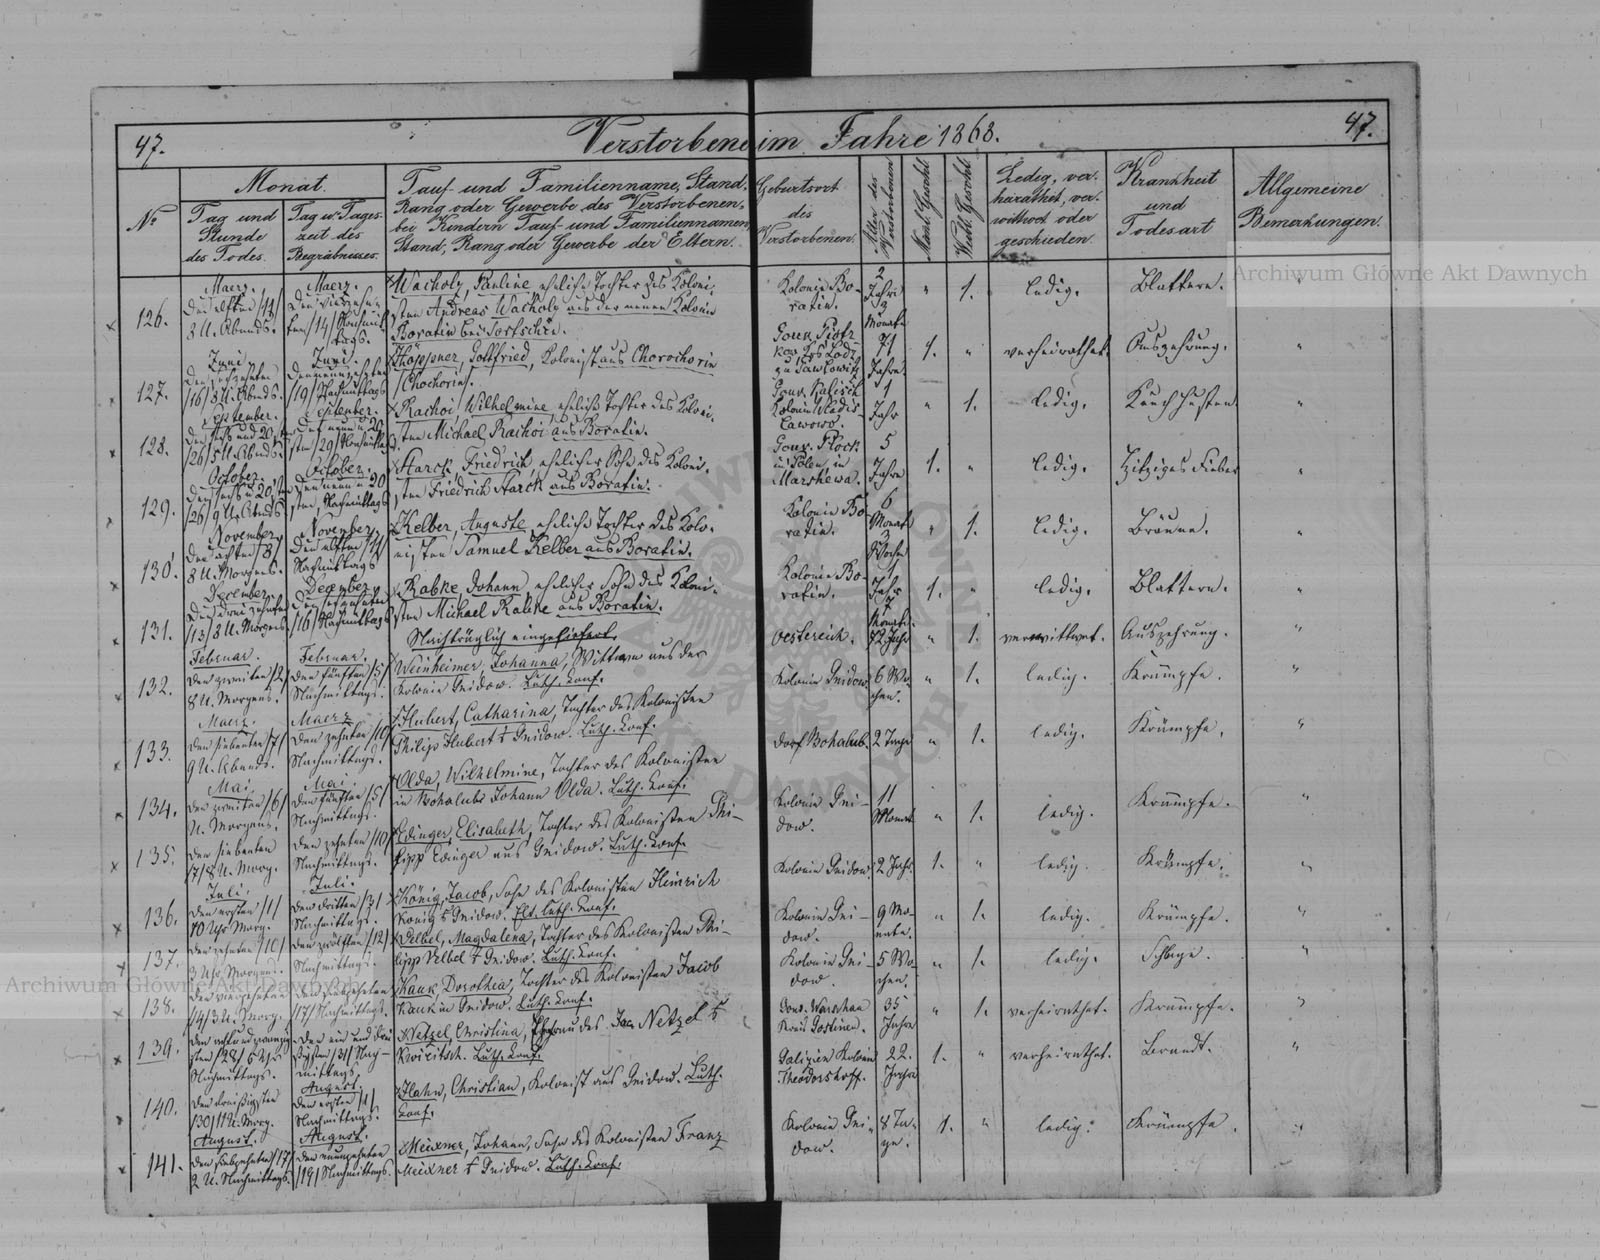 47.
Verstorbene im Jahre 1868.
47.
No
Monat.
Tag und
Stunde
des Todes.
Tag u. Tages-
zeit des
Begräbnisses.
Tauf- und Familienname, Stand,
Rang oder Gewerbe des Verstorbenen,
bei Kindern Tauf- und Familiennamen,
Stand, Rang oder Gewerbe der Eltern.
Geburtsort
des
Verstorbenen.
Alter des
Verstorbenen
Mänl. Geschl.
Weibl. Geschl.
Ledig, ver-
heirathet, ver-
wittwet oder
geschieden.
Krankheit
und
Todesart
Allgemeine
Bemerkungen.
126.
Maerz.
den elften /11/
8 U. Abends.
Maerz.
den vierzehn-
ten /14/ Nachmit-
tags.
Wacholz, Pauline, eheliche Tochter des Koloni-
sten Andreas Wacholz aus der neuen Kolonie
Boratin bei Torschin.
Kolonie Bo-
ratin.
2
Jahre
3
Monate
" 1. ledig. Blattern. "
127.
Juni
den sechszehnten
/16/ 8 U. Abends.
Juni.
den neunzehnten
/19/ Nachmittags
Höppner, Gottfried, Kolonist aus Chorochorin
/Chochorin/.
Gouv. Piotr-
kow
zu Pawlowitz
71
Jahre.
1. " verheirathet. Auszehrung. "
128.
September.
den sechs und 20sten
/26/ 5 U. Abends.
September.
den neun u. 20
sten /29/ Nachmittags
Rachoi, Wilhelmine, eheliche Tochter des Koloni-
sten Michael Rachoi aus Boratin.
Gouv. Kalisch
Kolonie Wladis-
lawowo.
1
Jahr
" 1. ledig. Keuchhusten. "
129.
October.
den sechs u. 20sten
/26/ 9 U. Abends
October.
den neun u. 20
sten, Nachmittags
Starck, Friedrich, ehelicher Sohn des Koloni-
sten Friedrich Starck aus Boratin.
Gouv. Plock
in Polen, in
Marshewa.
5
Jahre
1. " ledig. Hitziges Fieber "
130.
November
den achten /8/
8 U. Morgens.
November.
den elften /11/
Nachmittags
Kelber, Auguste, eheliche Tochter des Kolo-
nisten Samuel Kelber aus Boratin.
Kolonie Bo-
ratin.
6
Monate
3
Woche
" 1. ledig. Bräune. "
131.
December.
den dreizehnten
/13/ 8 U. Morgens
December.
den sechzehnten
/16/ Nachmittags
Rabke, Johann, ehelicher Sohn des Koloni-
sten Michael Rabke aus Boratin.
Kolonie Bo-
ratin.
1
Jahr
7
Monate.
1. " ledig. Blattern. "
Nachträglich eingeliefert.
132.
Februar.
den zweiten /2/
8 U. Morgens.
Februar.
den fünften /5/
Nachmittags.
Weinheimer, Johanna, Wittwe aus der
Kolonie Gnidow. Luth. Conf.
Oestereich. 72 Jahr " 1. verwittwet. Auszehrung. "
133.
Maerz.
den siebenten /7/
9 U. Abends.
Maerz
den zehnten /10/
Nachmittags.
Hubert, Catharina, Tochter des Kolonisten
Philip Hubert Gnidow. Luth. Conf.
Kolonie Gnidow.
6 Wo-
chen.
" 1. ledig. Krämpfe. "
134.
Mai.
den zweiten
U. Morgens.
Mai.
den fünften /5/
Nachmittags.
Olda, Wilhelmine, Tochter des Kolonisten
in Boholubi Johann Olda. Luth. Conf.
Dorf Boholub. 2 Tage " 1. ledig. Krämpfe. "
135.
den siebenten
/7/ 8 U. Morg.
den zehnten /10/
Nachmittags.
Edinger, Elisabeth, Tochter des Kolonisten Phi-
lipp Edinger aus Gnidow. Luth. Conf.
Kolonie Gni-
dow.
11
Monat
" 1. ledig. Krämpfe. "
136.
Juli.
den ersten /1/
10 Uhr Morg.
Juli.
den dritten /3/
Nachmittags.
König, Jacob, Sohn des Kolonisten Heinrich
König Gnidow. Luth. Conf.
Kolonie Gnidow 2 Jahr. 1. " ledig. Krämpfe. "
137.
den zehnten /10/
3 Uhr Morgens.
den zwölften /12/
Nachmittags.
Velbel, Magdalena, Tochter des Kolonisten Phi-
lipp Velbel Gnidow. Luth. Conf.
Kolonie Gni-
dow.
9 Mo-
nate.
" 1. ledig. Krämpfe. "
138.
den vierzehnten
/14/ 3 U. Morg.
den siebzehnten
/17/ Nachmittags.
Kauk, Dorothea, Tochter des Kolonisten Jacob
Kauk in Gnidow. Luth. Conf.
Kolonie Gni-
dow.
5 Wo-
chen.
" 1. ledig. "
139.
den acht und zwanzig-
sten /28/ 6 Uhr
Nachmittags.
den ein und drei-
ßigsten /31/ Nach-
mittags.
Netzel, Christina, Ehefrau des Jac. Netzel
Luth. Conf.
Gouv. Warschau
Kreis Gostinin.
35
Jahre
" 1. verheirathet. Krämpfe. "
140.
den dreißigsten
/30/ 11 U. Morg.
August.
den ersten /1/
Nachmittags.
Hahn, Christian, Kolonist aus Gnidow. Luth.
Conf.
Galizien Kolonie
Theodorshoff.
22.
Jahre
1. " verheirathet. Brandt. "
141.
August.
den siebzehnten /17/
2 U. Nachmittags.
August.
den neunzehnten
/19/ Nachmittags.
Meixner, Johann, Sohn des Kolonisten Franz
Meixner Gnidow. Luth. Conf.
Kolonie Gni-
dow.
8 Ta-
ge.
1. " ledig. Krämpfe. "
Archiwum Główne Akt Dawnych
Archiwum Główne Akt Dawnych